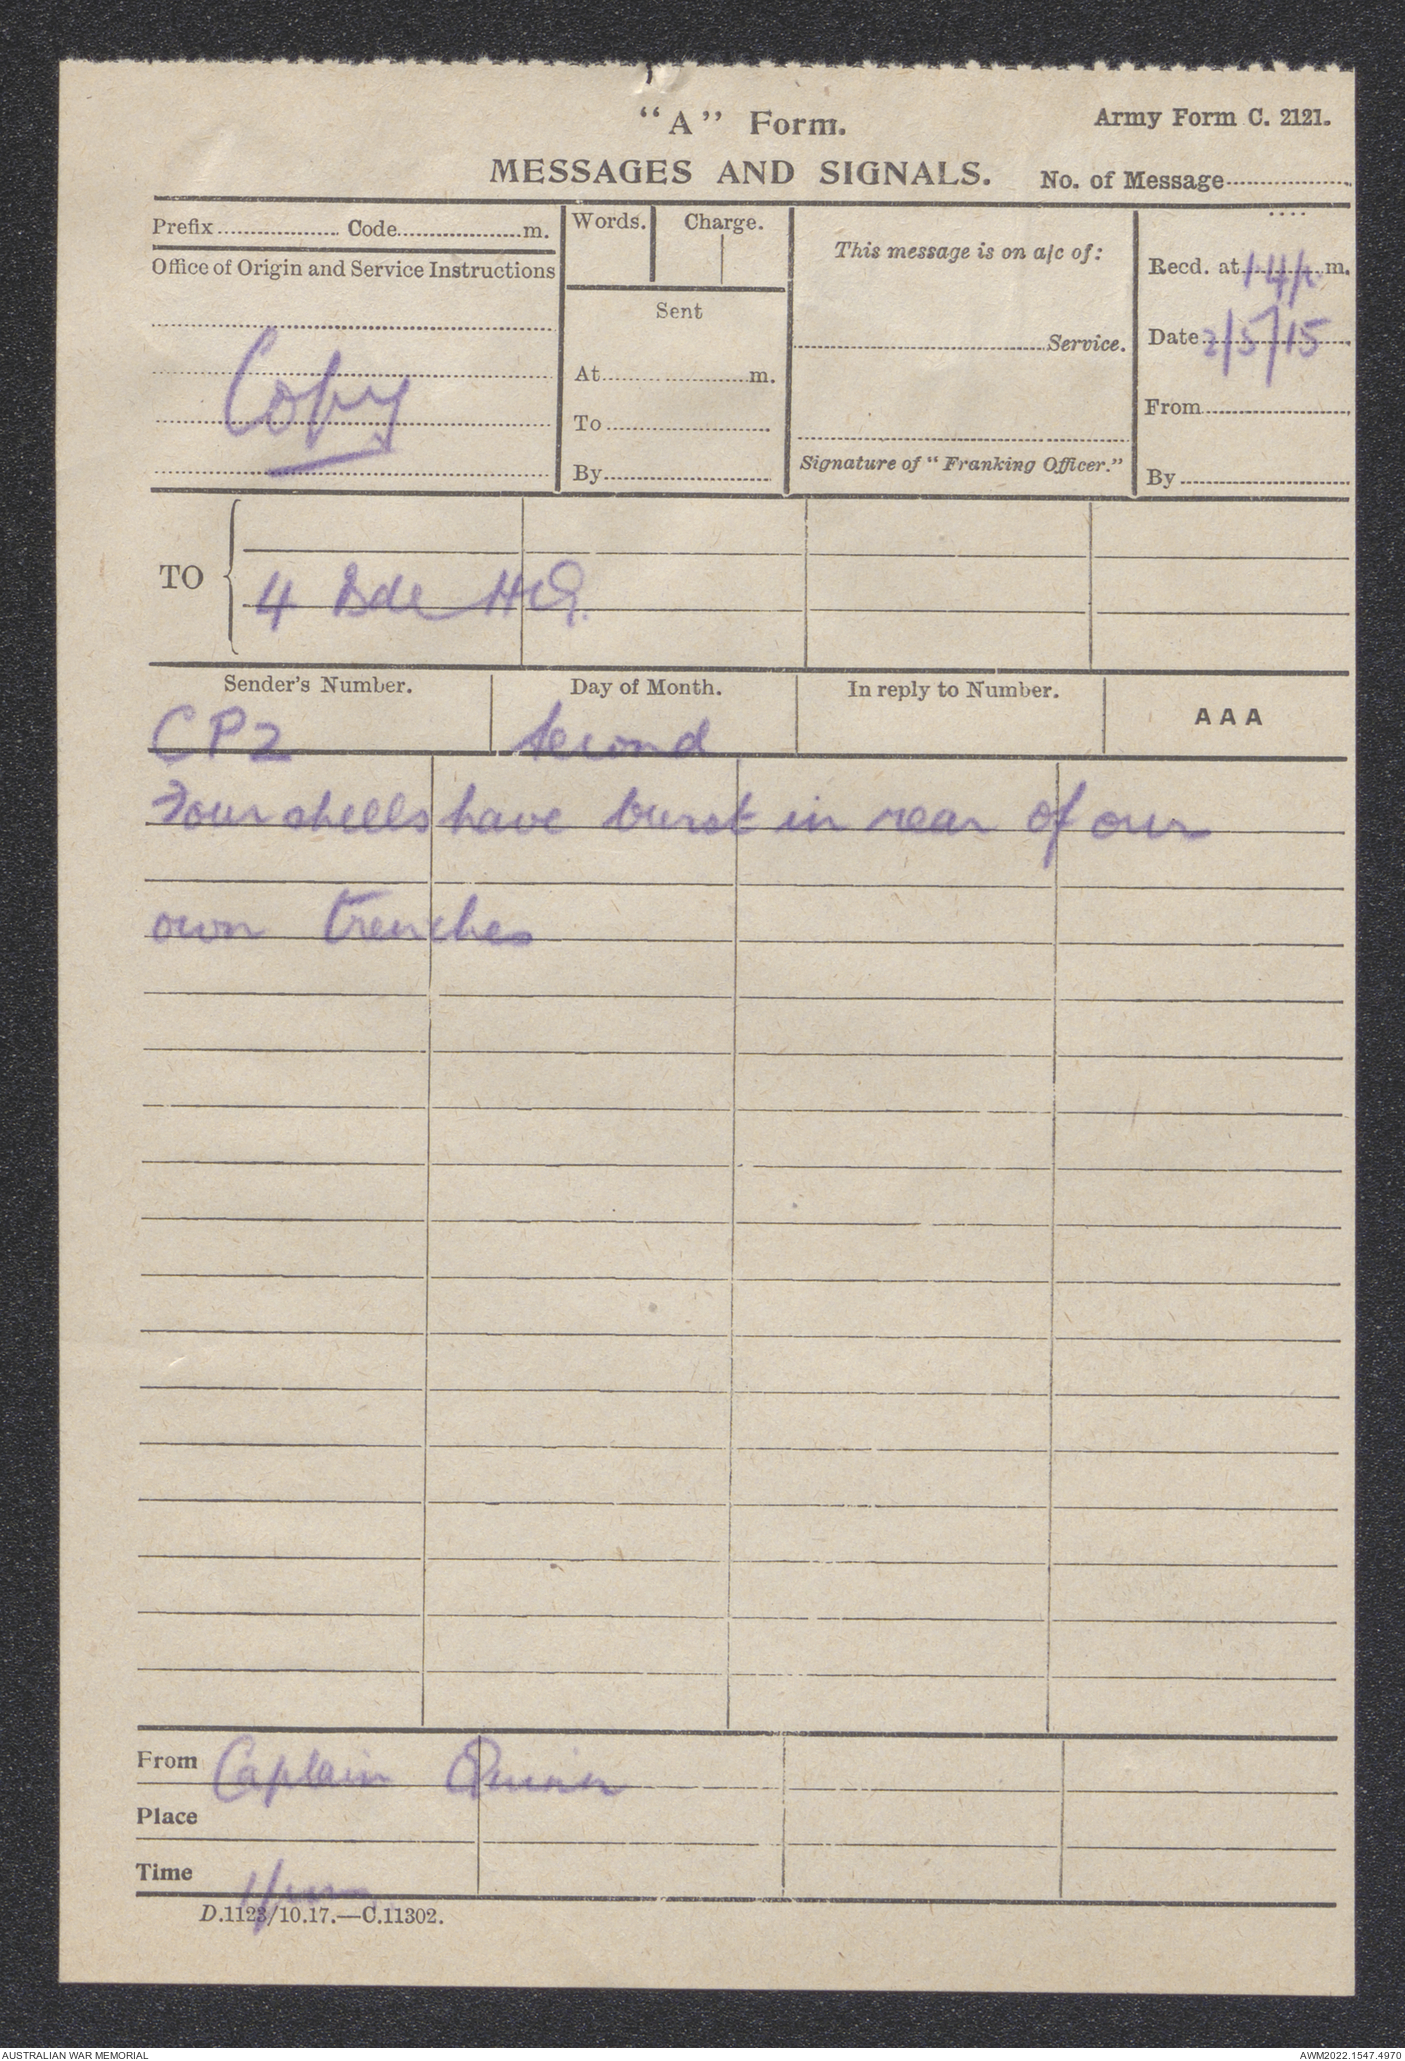 "A" Form.
Army Form C. 2121.
MESSAGES AND SIGNALS.
No. of Message
Prefix Code m.
Words. Charge.
This message is on a/c of:
Recd. at 1.4 p. m.
Office of Origin and Service Instructions
Sent
Service.
Date 2/5/15
Copy
At m.
From
To
Signature of "Franking Officer."
By
By
TO
4 Bde HQ.
Sender's Number. Day of Month. In reply to Number. AAA
CP2 Second
Four shells have burst in rear of our
own trenches
From Captain Quinn
Place
Time 1 pm
D.1123/10.17.—C.11302.
AUSTRALIAN WAR MEMORIAL
AWM2022.1547.4970